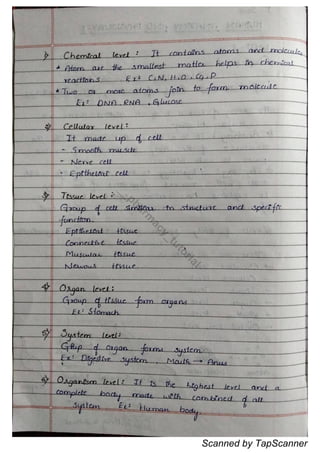 1) Chemical level : It contains atoms and molecules
* Atom are the smallest matter helps in chemical
reactions. Ex: C, N, H, O, Ca, P
* Two or more atoms join to form molecule
Ex: DNA, RNA, Glucose
2) Cellular level :
It made up of cell
- Smooth muscle
- Nerve cell
- Epithelial cell
3) Tissue level :
Group of cell similar in structure and specific
function.
Epithelial tissue
Connective tissue
Muscular tissue
Nervous tissue
4) Organ level :
Group of tissue form organs
Ex: Stomach
5) System level:
Group of organ forms system
Ex: Digestive system. Mouth → Anus
6) Organism level : It is the highest level and a
complete body made with combined of all
system Ex: Human body.
Scanned by TapScanner